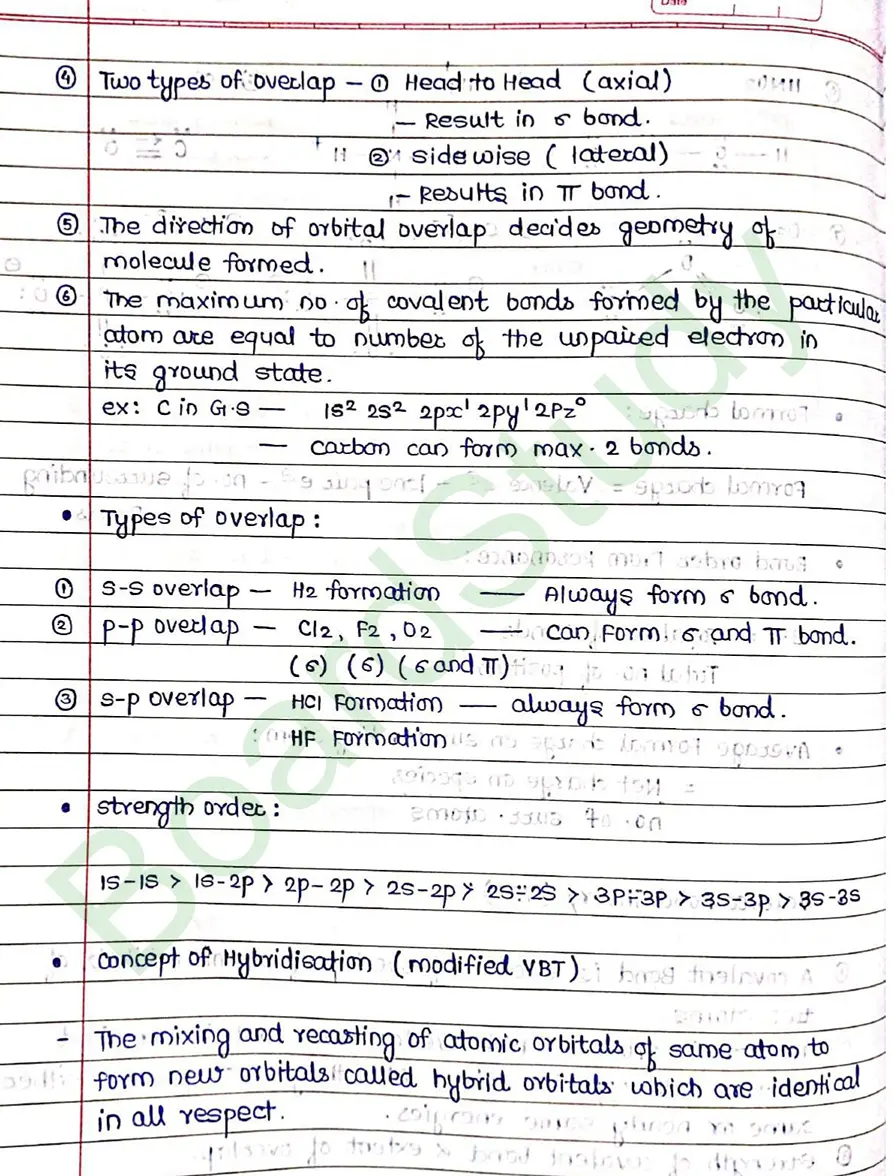 Date
④ Two types of overlap – ① Head to Head (axial)
– Result in σ bond.
② sidewise (lateral)
– Results in π bond.
⑤ The direction of orbital overlap decides geometry of
molecule formed.
⑥ The maximum no. of covalent bonds formed by the particular
atom are equal to number of the unpaired electron in
its ground state.
ex: C in G.S – 1s² 2s² 2px¹ 2py¹ 2Pz⁰
– carbon can form max. 2 bonds.
• Types of overlap:
① S-S overlap – H2 formation — Always form σ bond.
② p-p overlap – Cl2, F2, O2 — can form σ and π bond.
(σ) (σ) (σ and π)
③ S-p overlap – HCl Formation — always form σ bond.
HF Formation
• strength order:
1S-1S > 1S-2p > 2p-2p > 2S-2p > 2S-2S > 3P-3P > 3S-3p > 3S-3S
• concept of Hybridisation (modified VBT)
- The mixing and recasting of atomic orbitals of same atom to
form new orbitals called hybrid orbitals which are identical
in all respect.
BoardStudy